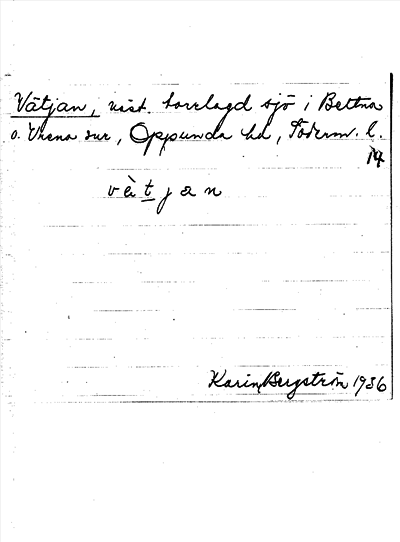 Vätjan, näst. torrlagd sjö i Bettna
o. Vrena snr, Oppunda hd, Söderm. l.
14
v ä̀ t j a n
Karin Bergström 1936